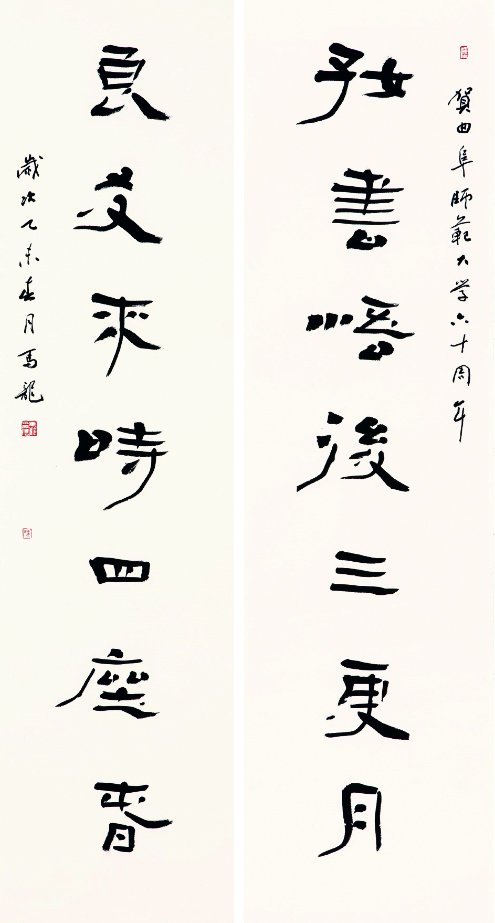 賀曲阜師範大学六十周年
好書悟後三更月
良友來時四座春
歲次乙未春月馬龍